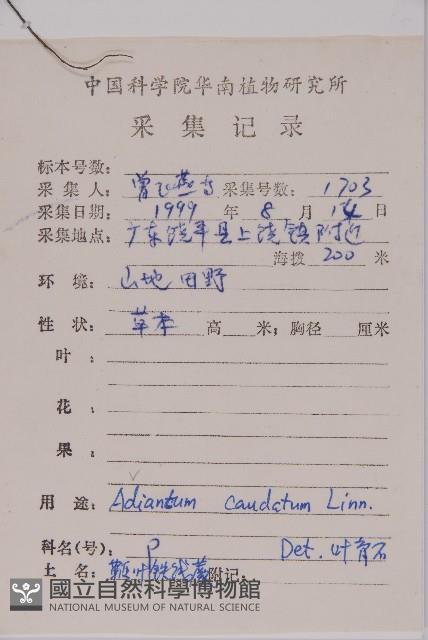 中国科学院华南植物研究所
采集记录
标本号数:
采集人: 曾飞燕 采集号数: 1703
采集日期: 1999 年 8 月 14 日
采集地点: 广东饶平县上饶镇附近
海拨 200 米
环境: 山地田野
性状: 草本 高 米; 胸径 厘米
叶:
花:
果:
用途: Adiantum caudatum Linn.
科名(号): P Det. 叶育石
土名: 鞭叶铁线蕨 附记:
國立自然科學博物館
NATIONAL MUSEUM OF NATURAL SCIENCE